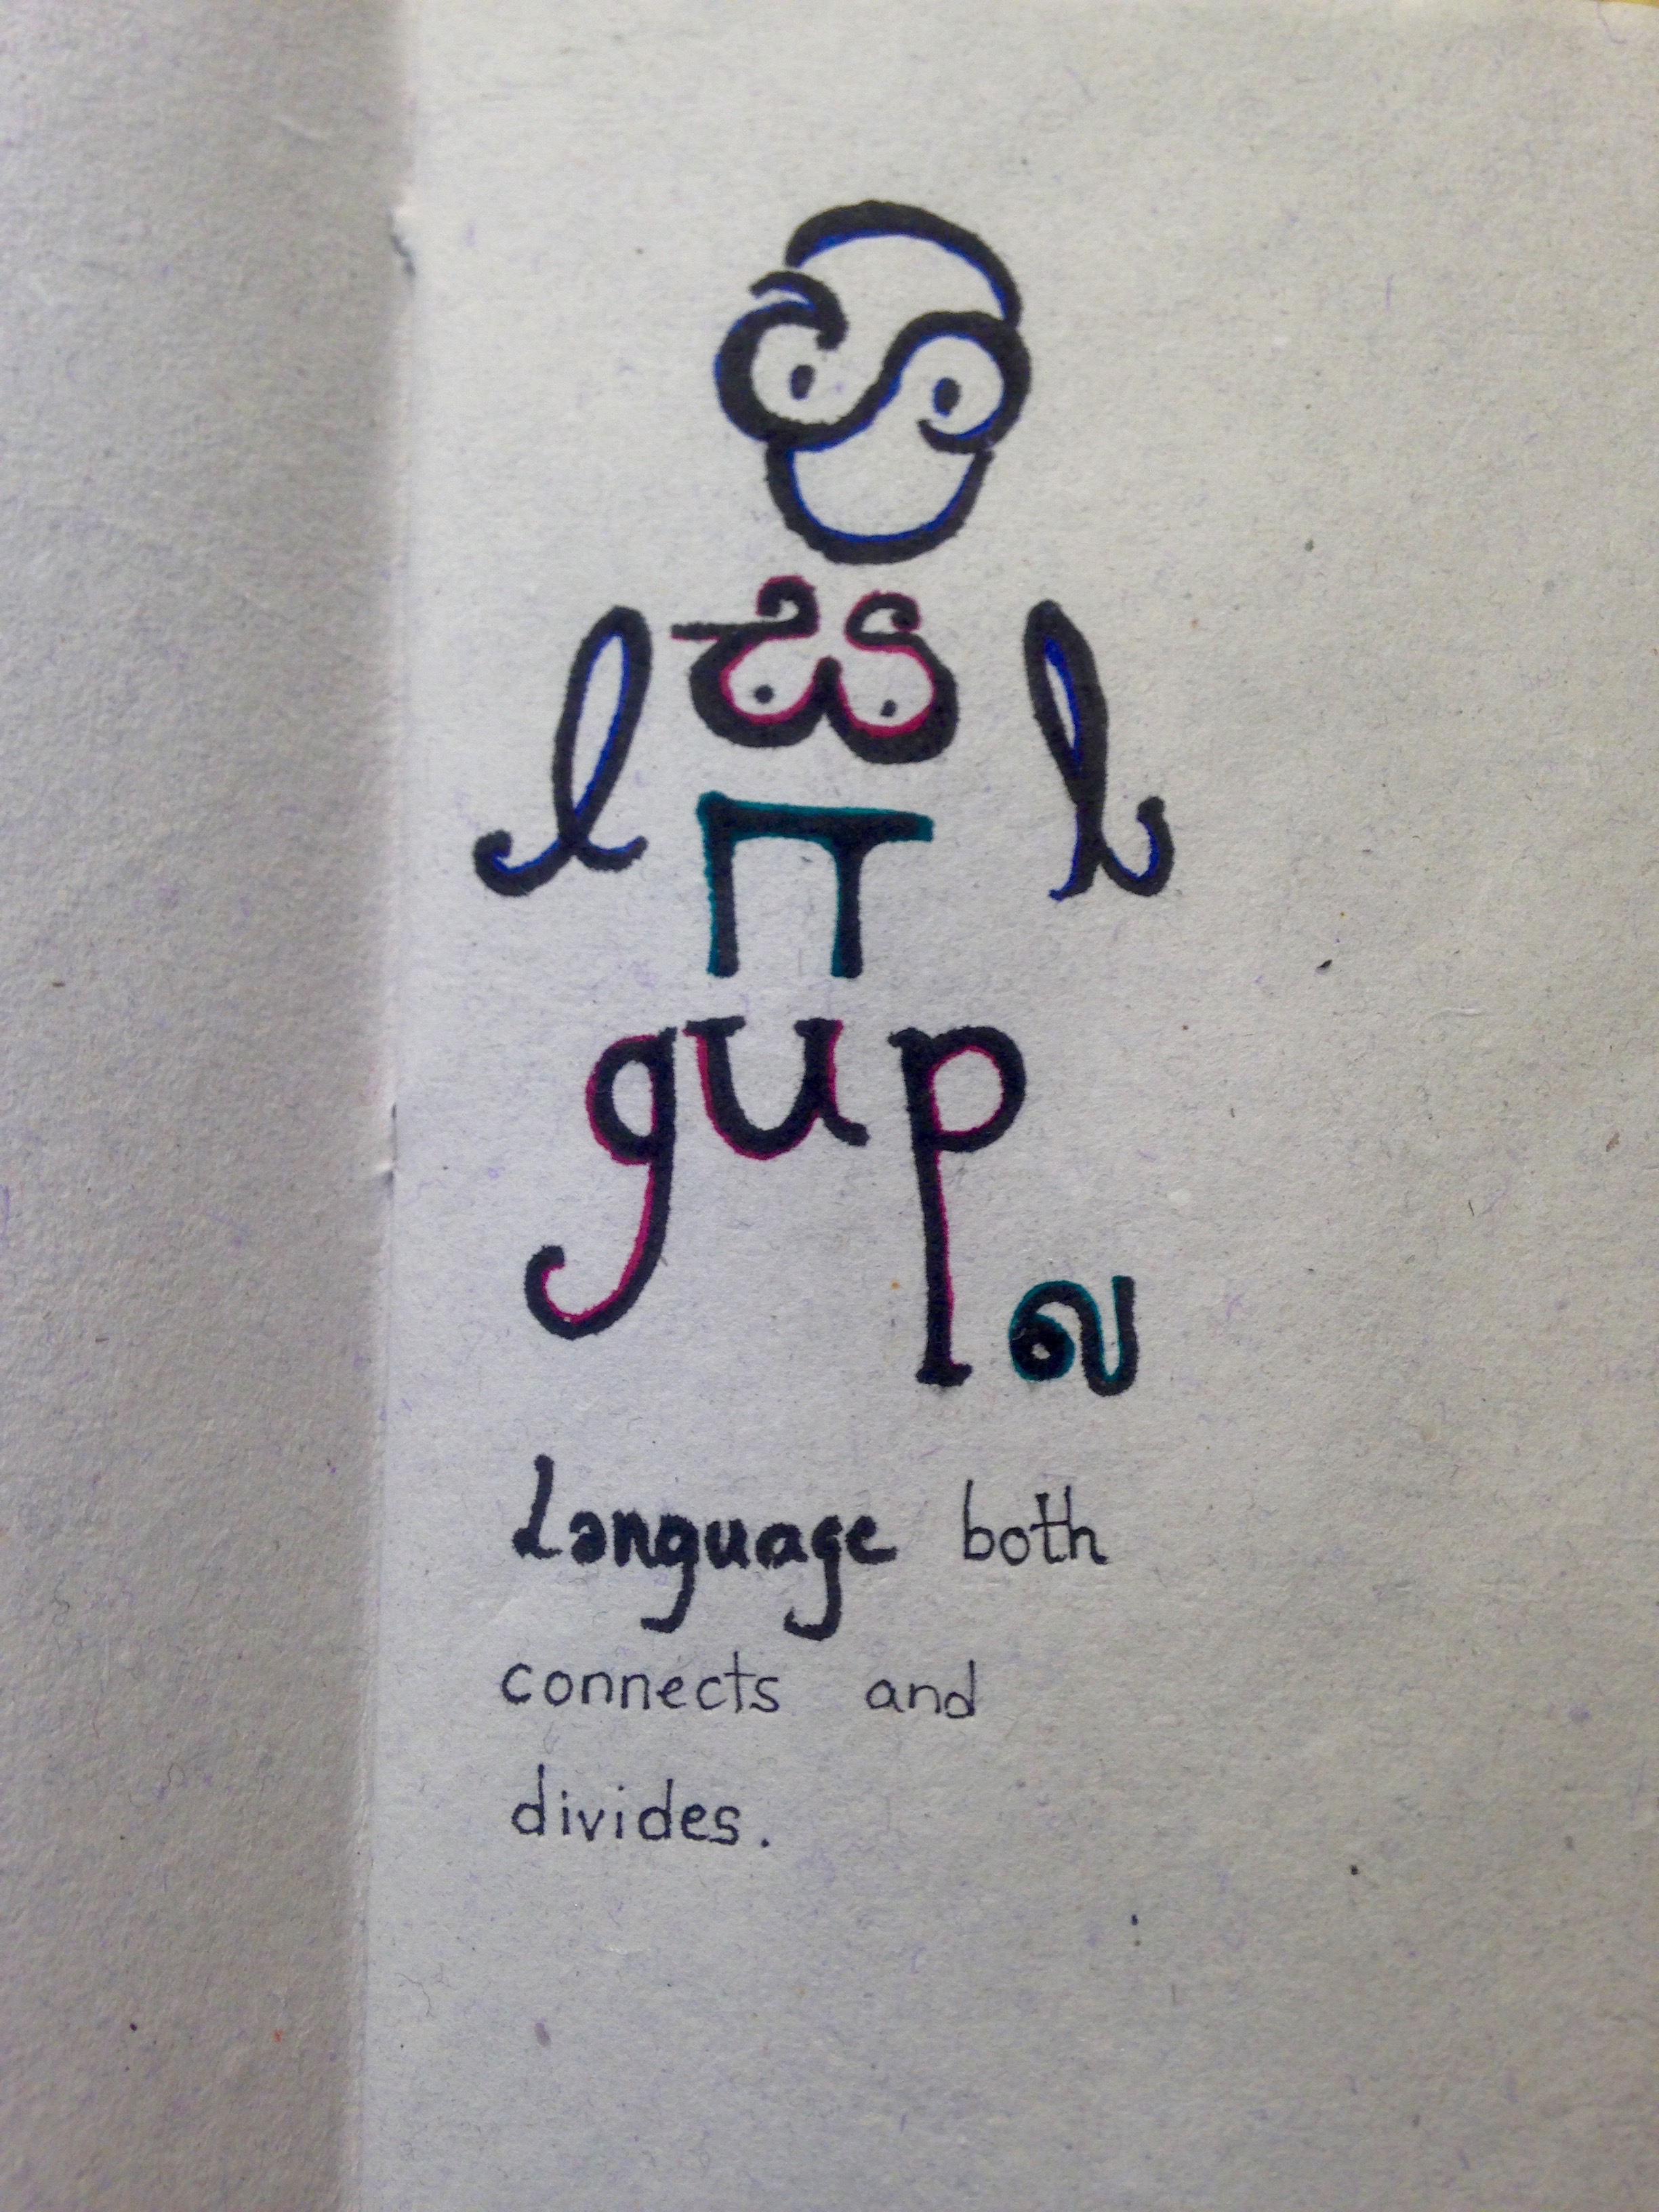 l
h
П
gup
ல
Language both
connects and
divides.